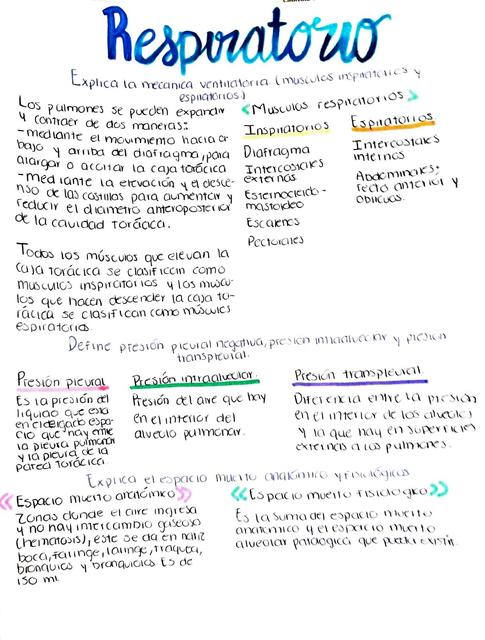 Respiratorio
Explica la mecánica ventilatoria (músculos inspiratorios y
espiratorios)
Los pulmones se pueden expandir
y contraer de dos maneras:
-mediante el movimiento hacia a-
bajo y arriba del diafragma, para
alargar o acortar la caja torácica
-mediante la elevación y el desce-
nso de las costillas para aumentar y
reducir el diametro anteroposterior
de la cavidad torácica.
Todos los músculos que elevan la
caja torácica se clasifican como
musculos inspiratorios y los muscu-
los que hacen descender la caja to-
rácica se clasifican como músculos
espiratorios.
<Musculos respiratorios>
Inspiratorios
Diafragma
Intercostales
externos
Esternocleido-
mastoideo
Escalenos
Pectorales
Espiratorios
Intercostales
internos
Abdominales:
recto anterior y
oblicuos.
Define presión pleural negativa, presion intraalveolar y presion
transpleural.
Presión pleural
Es la presión del
liquido que esta
en el delgado espa-
cio que hay entre
la pleura pulmonar
y la pleura de la
pared torácica.
Presión intraalveolar.
Presión del aire que hay
en el interior del
alveolo pulmonar.
Presión transpleural.
Diferencia entre la presión
en el interior de los alveolos
y la que hay en superficies
externas a los pulmones.
Explica el espacio muerto anatómico y fisiológicos
«Espacio muerto anatómico»
Zonas donde el aire ingresa
y no hay intercambio gaseoso
(hematosis), este se da en nariz
boca, faringe, laringe, traquea,
bronquios y bronquiolos. Es de
150 ml.
«Espacio muerto fisiologico»
Es la suma del espacio muerto
anatomico y el espacio muerto
alveolar patológico que pueda existir.